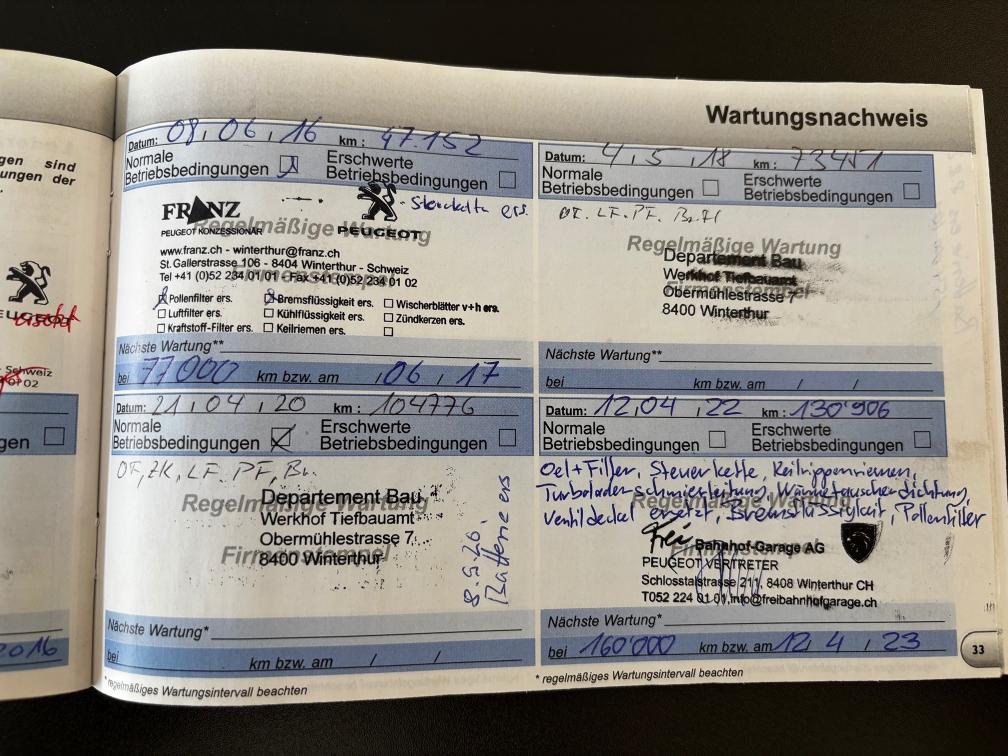 Wartungsnachweis
gen sind
ungen der
Schweiz
gen
2016
Datum: 08.06.16 km: 47.152
Normale
Betriebsbedingungen
Erschwerte
Betriebsbedingungen
FRANZ
PEUGEOT KONZESSIONÄR
PEUGEOT
ers.
Regelmäßige Wartung
www.franz.ch - winterthur@franz.ch
St. Gallerstrasse 106 - 8404 Winterthur - Schweiz
Tel +41 (0)52 234 01 01 - Fax +41 (0)52 234 01 02
Firmenstempel
Pollenfilter ers. Bremsflüssigkeit ers. Wischerblätter v+h ers.
Luftfilter ers. Kühlflüssigkeit ers. Zündkerzen ers.
Kraftstoff-Filter ers. Keilriemen ers.
Nächste Wartung**
bei 77000 km bzw. am / 06 / 17
Datum: 4.5.18 km: 73451
Normale
Betriebsbedingungen
Erschwerte
Betriebsbedingungen
LF. PF.
Regelmäßige Wartung
Departement Bau
Werkhof Tiefbauamt
Firmenstempel
Obermühlestrasse 7
8400 Winterthur
Nächste Wartung**
bei km bzw. am / /
Datum: 21.04.20 km: 104776
Normale
Betriebsbedingungen
Erschwerte
Betriebsbedingungen
OF, ZK, LF. PF, Br.
Regelmäßige Wartung
Departement Bau
Werkhof Tiefbauamt
Obermühlestrasse 7
Firmenstempel
8400 Winterthur
Batterie ers
Nächste Wartung*
bei km bzw. am / /
* regelmäßiges Wartungsintervall beachten
Datum: 12.04.22 km: 130'906
Normale
Betriebsbedingungen
Erschwerte
Betriebsbedingungen
Oel+Filter, Steuerkette, Keilrippenriemen,
Turbolader schmierleitung, Wärmetauscher dichtung,
Ventildeckel ersetzt, Bremsflüssigkeit, Pollenfilter
Regelmäßige Wartung
Frei Bahnhof-Garage AG
Firmenstempel
PEUGEOT VERTRETER
Schlosstalstrasse 211, 8408 Winterthur CH
T052 224 01 01, info@freibahnhofgarage.ch
Nächste Wartung*
bei 160'000 km bzw. am 12 / 4 / 23
* regelmäßiges Wartungsintervall beachten
33